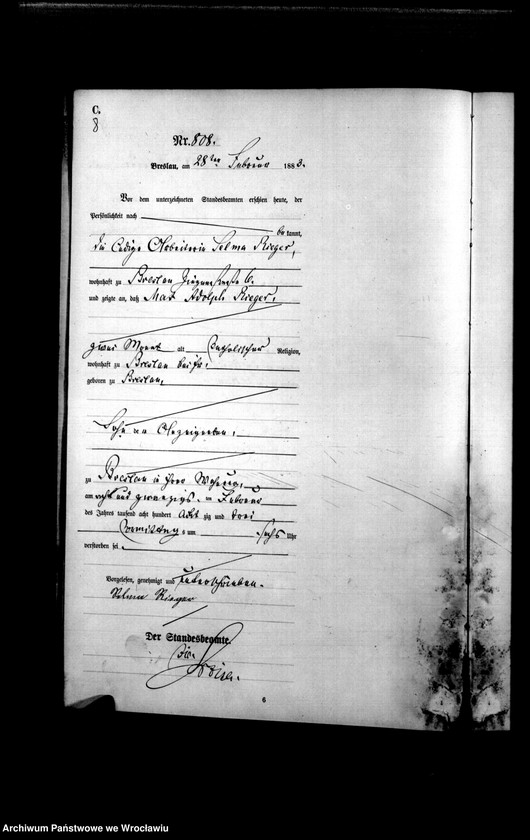 C.
8
Nr. 808.
Breslau, am 28ten Februar 1883.
Vor dem unterzeichneten Standesbeamten erschien heute, der
Persönlichkeit nach
be kannt,
die ledige Arbeiterin Selma Rieger,
wohnhaft zu Breslau 6.
und zeigte an, daß Max Adolph Rieger,
zwei Monat alt katholischer Religion,
wohnhaft zu Breslau bei ihr,
geboren zu Breslau,
Sohn der Anzeigenden,
zu Breslau in ihrer Wohnung,
am acht und zwanzigsten Februar
des Jahres tausend acht hundert achtzig und drei
Vormittags um sechs Uhr
verstorben sei.
Vorgelesen, genehmigt und unterschrieben.
Selma Rieger
Der Standesbeamte.
6
Archiwum Państwowe we Wrocławiu